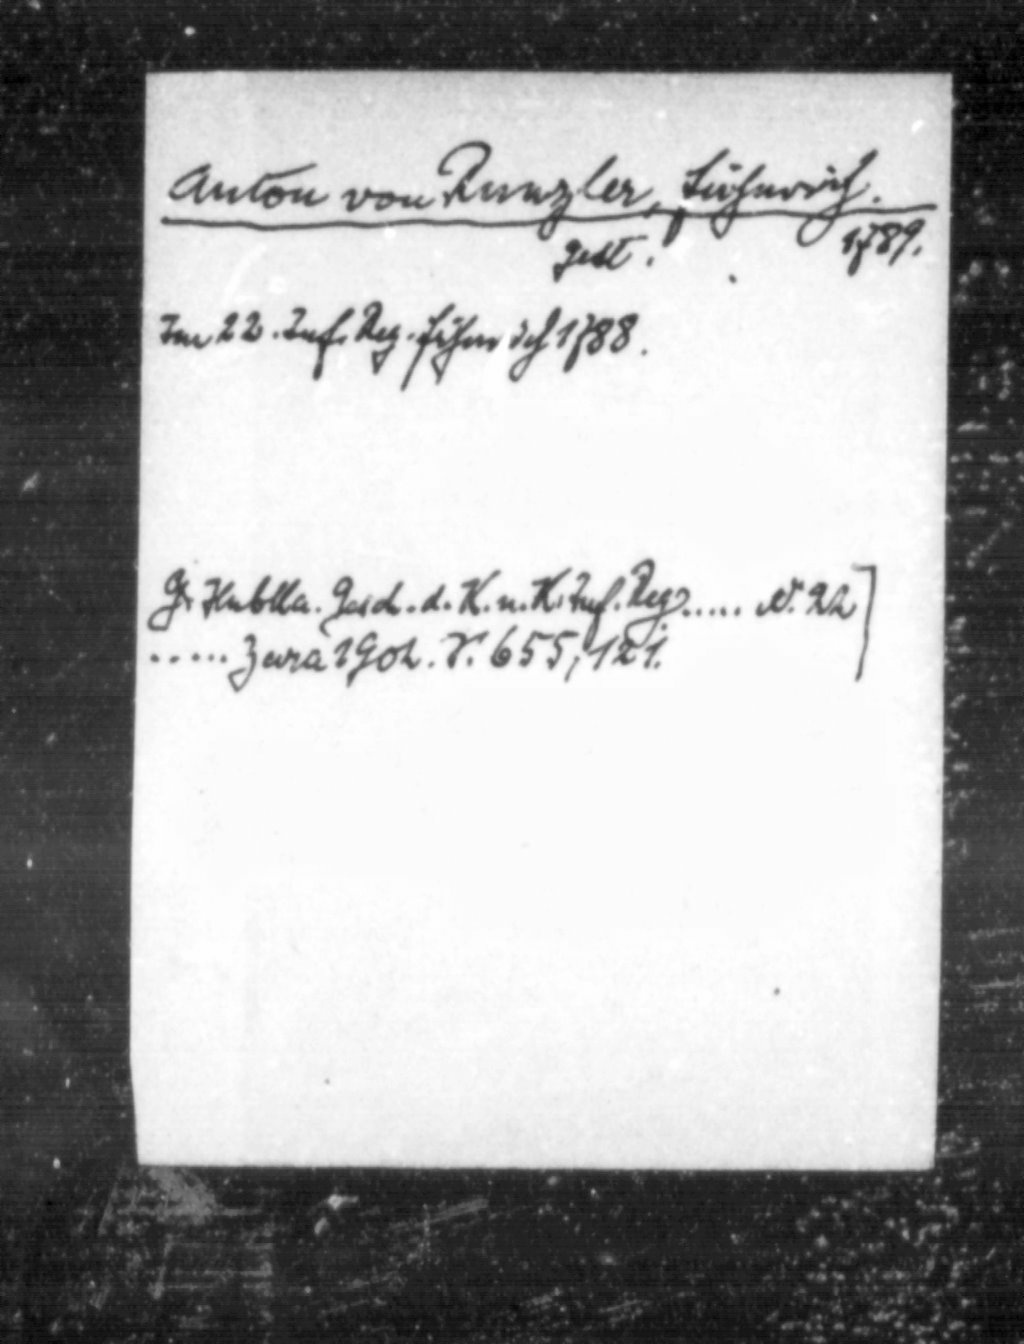 Anton von Runzler, Fähnrich.
gest. 1789.
Im 22. Inf. Reg. Fähnrich 1788.
G. Hubka. Gesch. d. K. u. K. Inf. Reg. ..... Nr. 22]
..... Zara 1902. S. 655, 121.